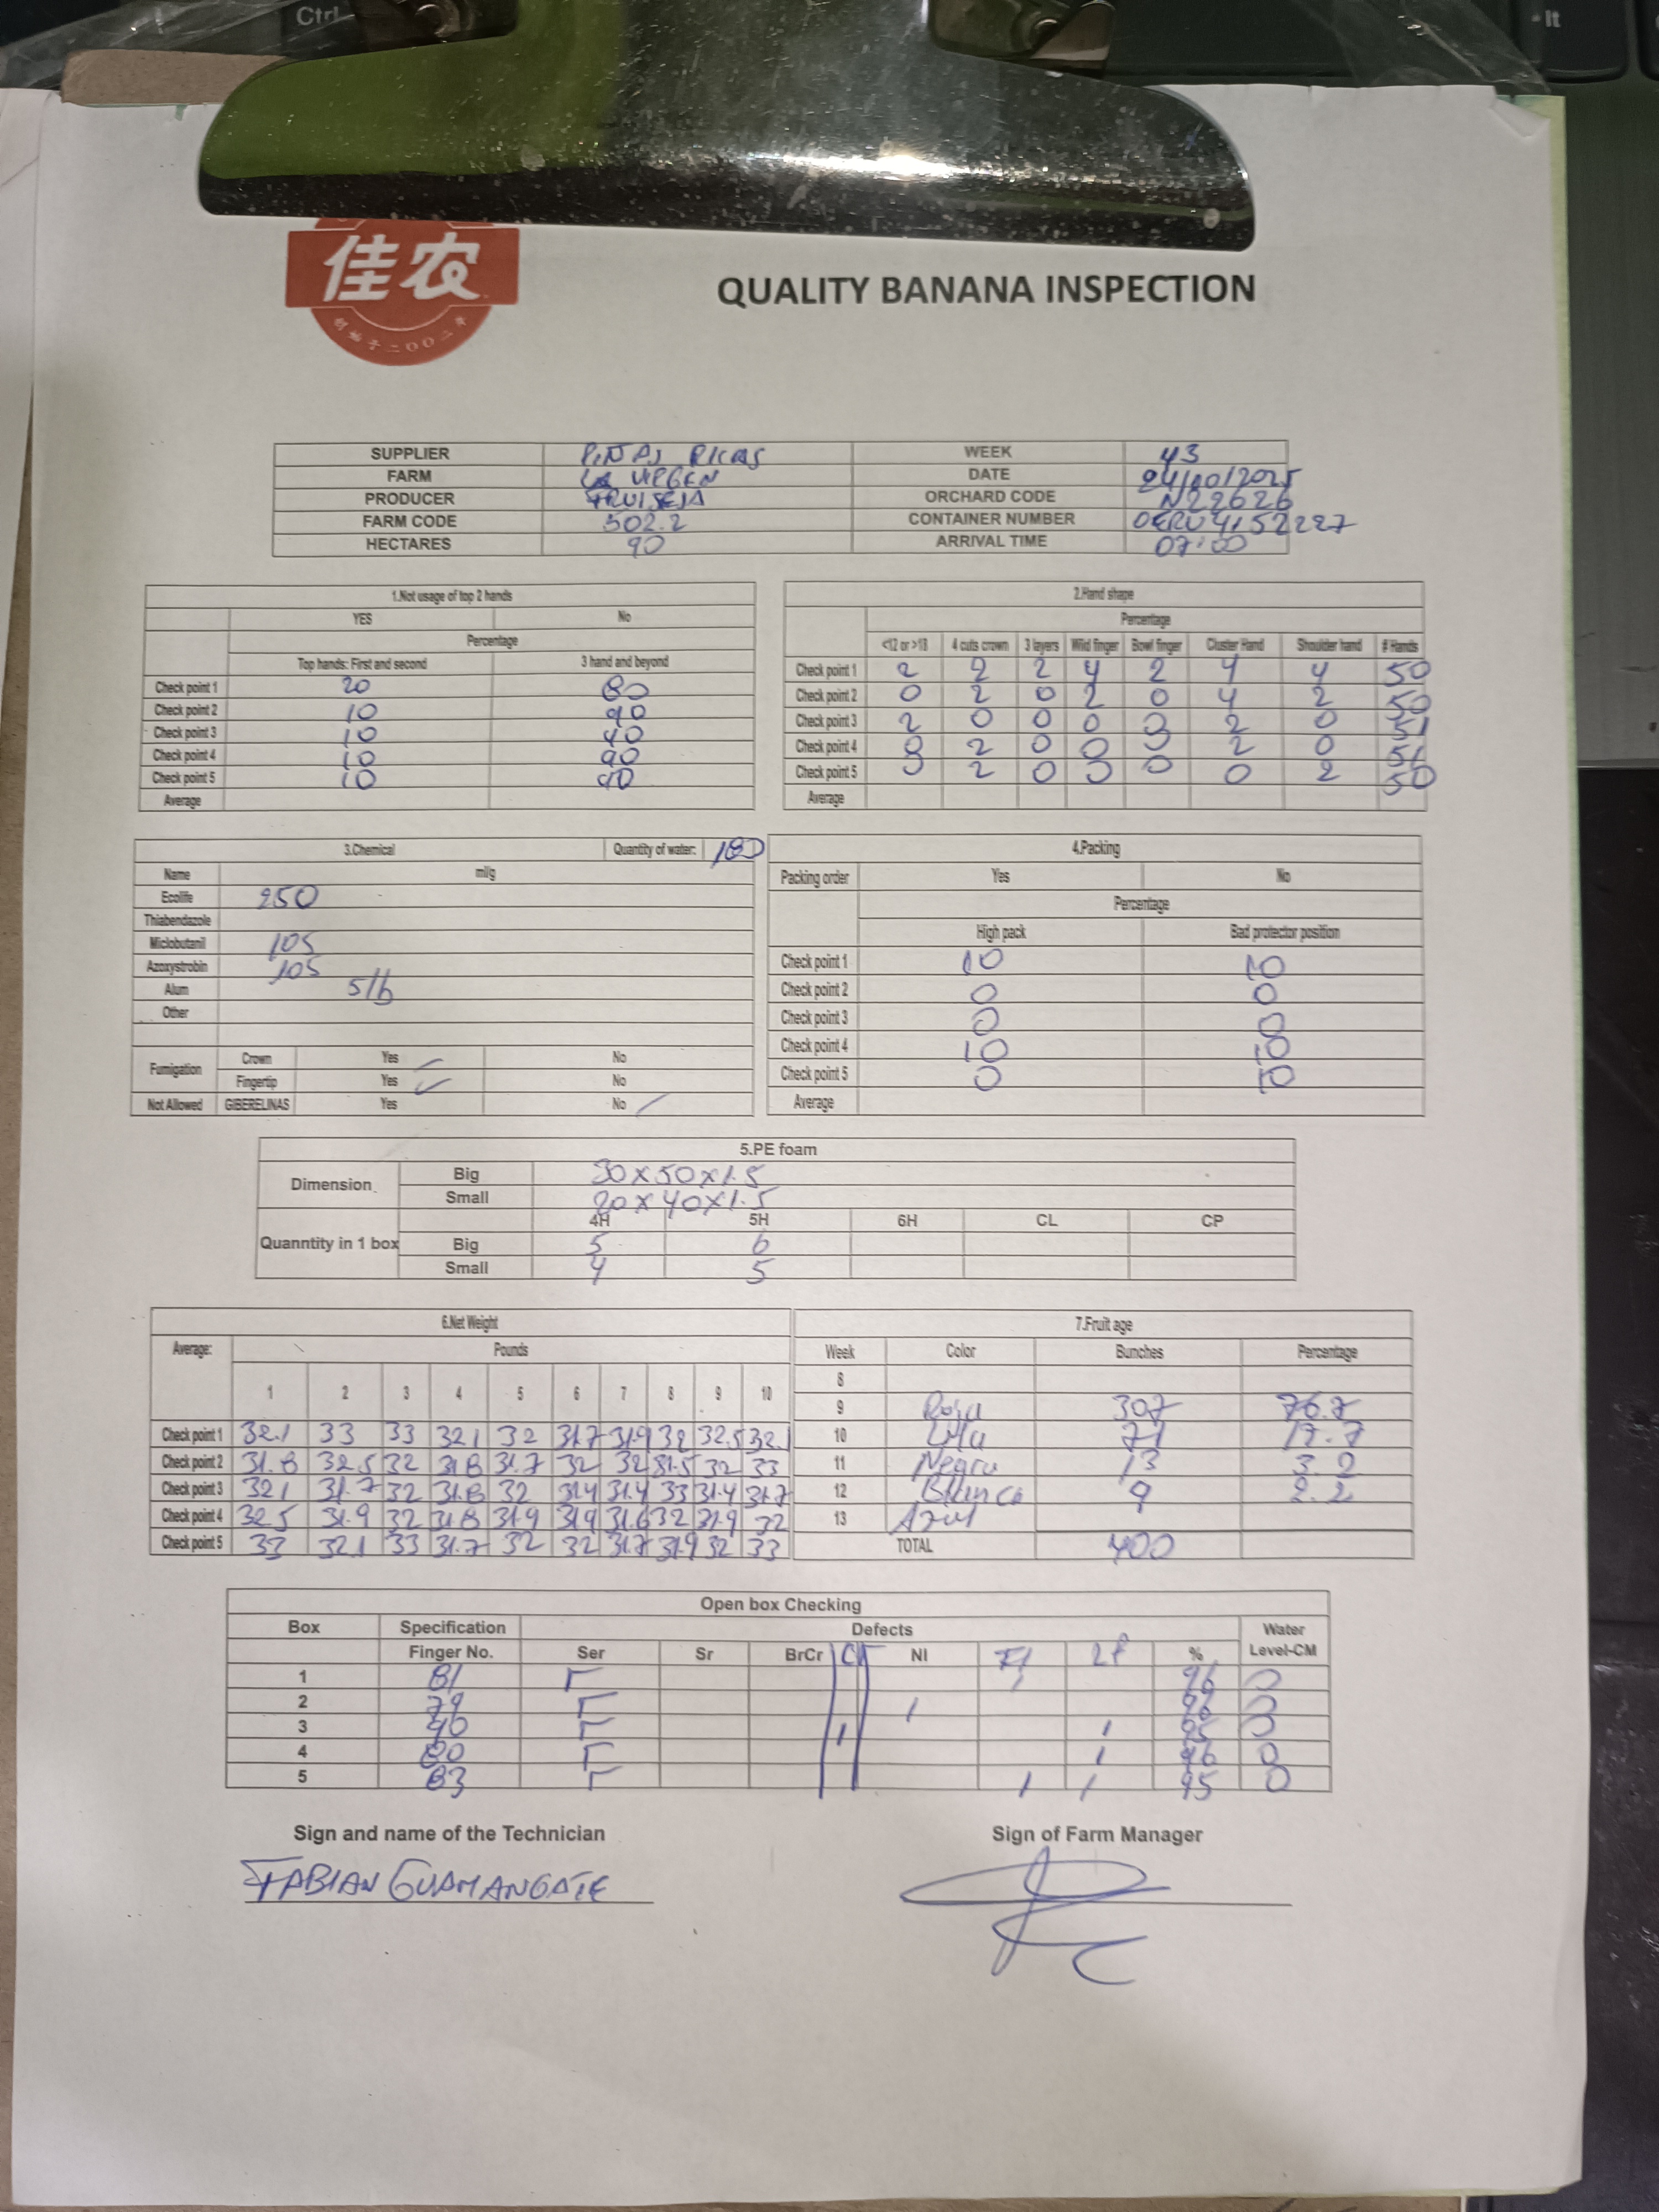 Ctrl
佳农
创始于二〇〇二年
QUALITY BANANA INSPECTION
SUPPLIER PINTAS RICAS WEEK 43
FARM LA VIRGEN DATE 24/10/2025
PRODUCER FRUISEJA ORCHARD CODE N22626
FARM CODE 502.2 CONTAINER NUMBER OERU4152227
HECTARES 90 ARRIVAL TIME 07:00
1.Not usage of top 2 hands
YES No
Percentage
Top hands: First and second 3 hand and beyond
Check point 1 20 80
Check point 2 10 90
Check point 3 10 90
Check point 4 10 90
Check point 5 10 90
Average
2.Hand shape
Percentage
<12 or >18 4 cuts crown 3 layers Wild finger Bowl finger Cluster Hand Shoulder hand # Hands
Check point 1 2 2 2 4 2 4 4 50
Check point 2 0 2 0 2 0 4 2 50
Check point 3 2 0 0 0 0 2 0 51
Check point 4 0 2 0 0 0 2 0 51
Check point 5 0 2 0 0 0 0 2 50
Average
3.Chemical Quantity of water: 180
Name ml/g
Ecolife 250
Thiabendazole
Miclobutanil 105
Azoxystrobin 105
Alum 5lb
Other
Fumigation Crown Yes No
Fingertip Yes No
Not Allowed GIBERELINAS Yes No
4.Packing
Packing order Yes No
Percentage
High pack Bad protector position
Check point 1 10 10
Check point 2 0 0
Check point 3 0 0
Check point 4 10 10
Check point 5 0 10
Average
5.PE foam
Dimension Big 30x50x1.5
Small 20x40x1.5
4H 5H 6H CL CP
Quanntity in 1 box Big 5 6
Small 4 5
6.Net Weight
Average: Pounds
1 2 3 4 5 6 7 8 9 10
Check point 1 32.1 33 33 32.1 32 31.7 31.9 32 32.5 32.1
Check point 2 31.8 32.5 32 31.8 31.7 32 32 31.5 32 33
Check point 3 32.1 31.7 32 31.8 32 31.4 31.4 33 31.4 31.7
Check point 4 32.5 31.9 32 31.8 31.9 31.9 31.6 32 31.9 32
Check point 5 33 32.1 33 31.7 32 32 31.7 31.9 32 33
7.Fruit age
Week Color Bunches Percentage
8
9 Rosa 307 76.7
10 Lila 71 17.7
11 Negro 13 3.2
12 Blanco 9 2.2
13 Azul
TOTAL 400
Open box Checking
Box Specification Defects Water
Finger No. Ser Sr BrCr NI % Level-CM
1 81 96 0
2 79 96 0
3 95 0
4 80 96 0
5 83 95 0
Sign and name of the Technician Sign of Farm Manager
FABIAN GUAMANGATE